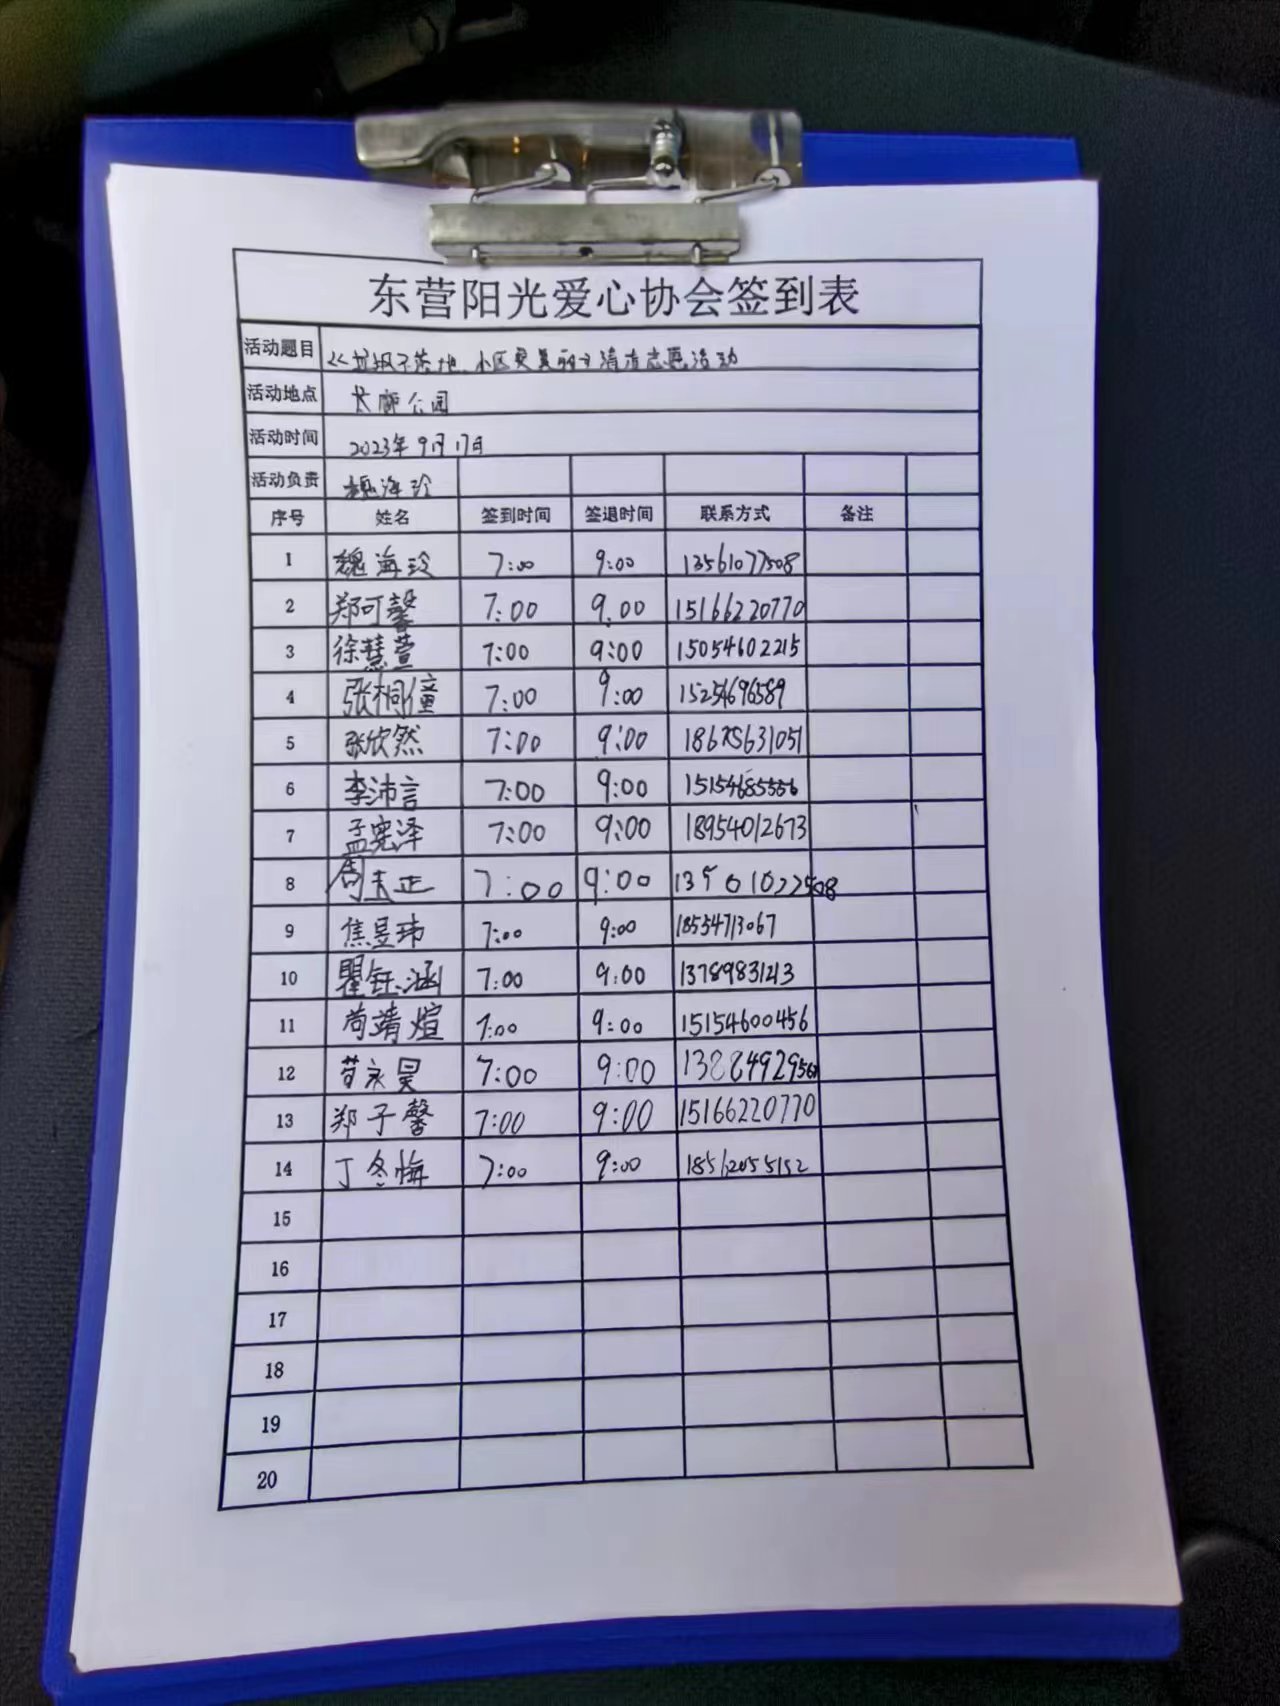 东营阳光爱心协会签到表
活动题目 <<垃圾不落地、小区更美丽>>清洁志愿活动
活动地点 公园
活动时间 2023年9月17日
活动负责 魏海玲
序号 姓名 签到时间 签退时间 联系方式 备注
1 魏海玲 7:00 9:00 13561077508
2 郑可馨 7:00 9.00 15166220770
3 徐慧萱 7:00 9:00 15054602215
4 张桐僮 7:00 9:00 15254696589
5 张欣然 7:00 9:00
6 李沛言 7:00 9:00
7 孟宪泽 7:00 9:00 18954012673
8 周 正 7:00 9:00
9 焦昱玮 7:00 9:00 18554713067
10 瞿钰涵 7:00 9:00
11 苟靖煊 7:00 9:00 15154600456
12 苟永昊 7:00 9:00
13 郑子馨 7:00 9:00 15166220770
14 丁冬梅 7:00 9:00 18562055152
15
16
17
18
19
20